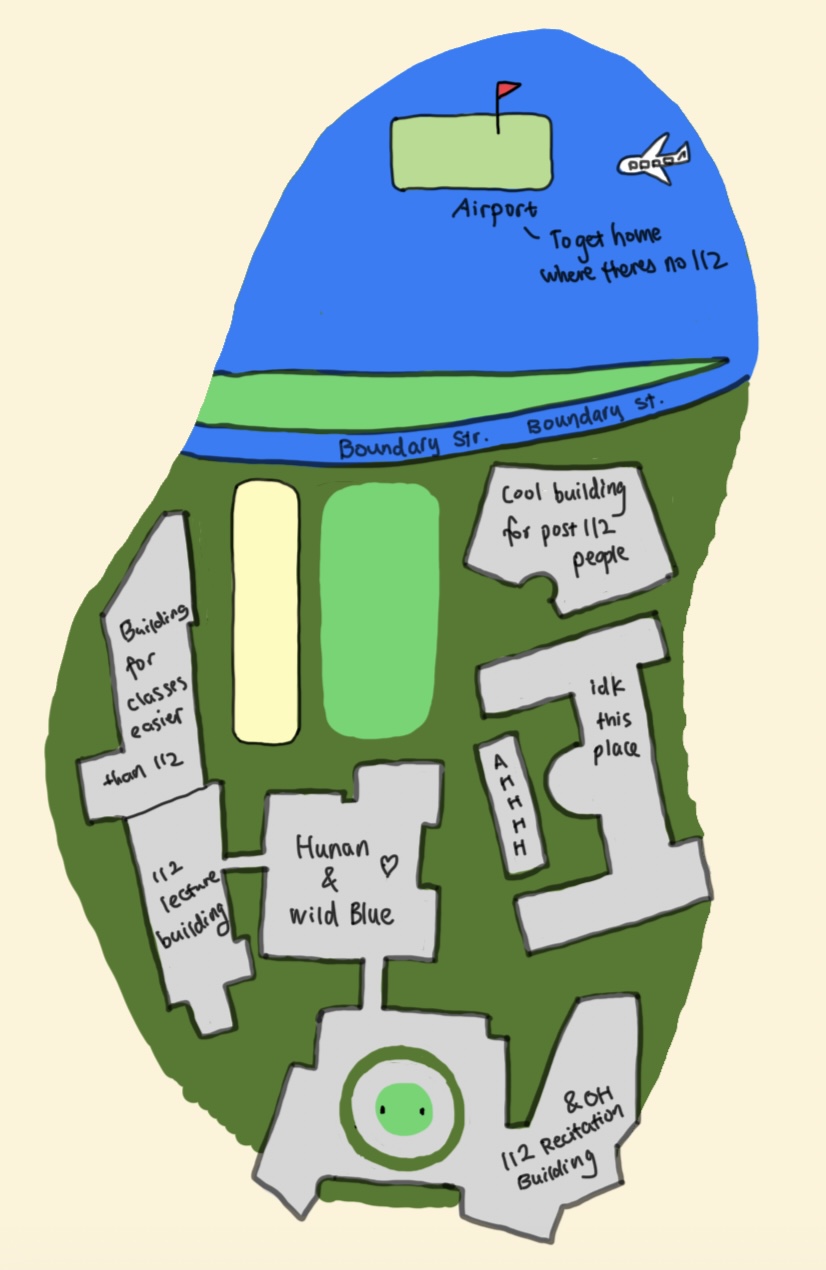 Airport
To get home
where theres no 112
Boundary Str.
Boundary St.
Cool building
for post 112
people
Building
for
classes
easier
than 112
idk
this
place
A
H
H
H
H
Hunan
&
wild Blue
112
lecture
building
& OH
112 Recitation
Building